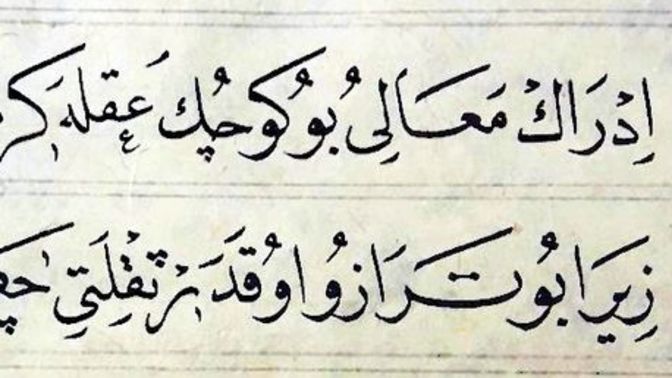 اِدْرَاكْ مَعَالِى بُو كُوچُك عَقلهَ
زِيرَا بُو تَرَازُو اوُقَدَرْ ثِقْلَتِى